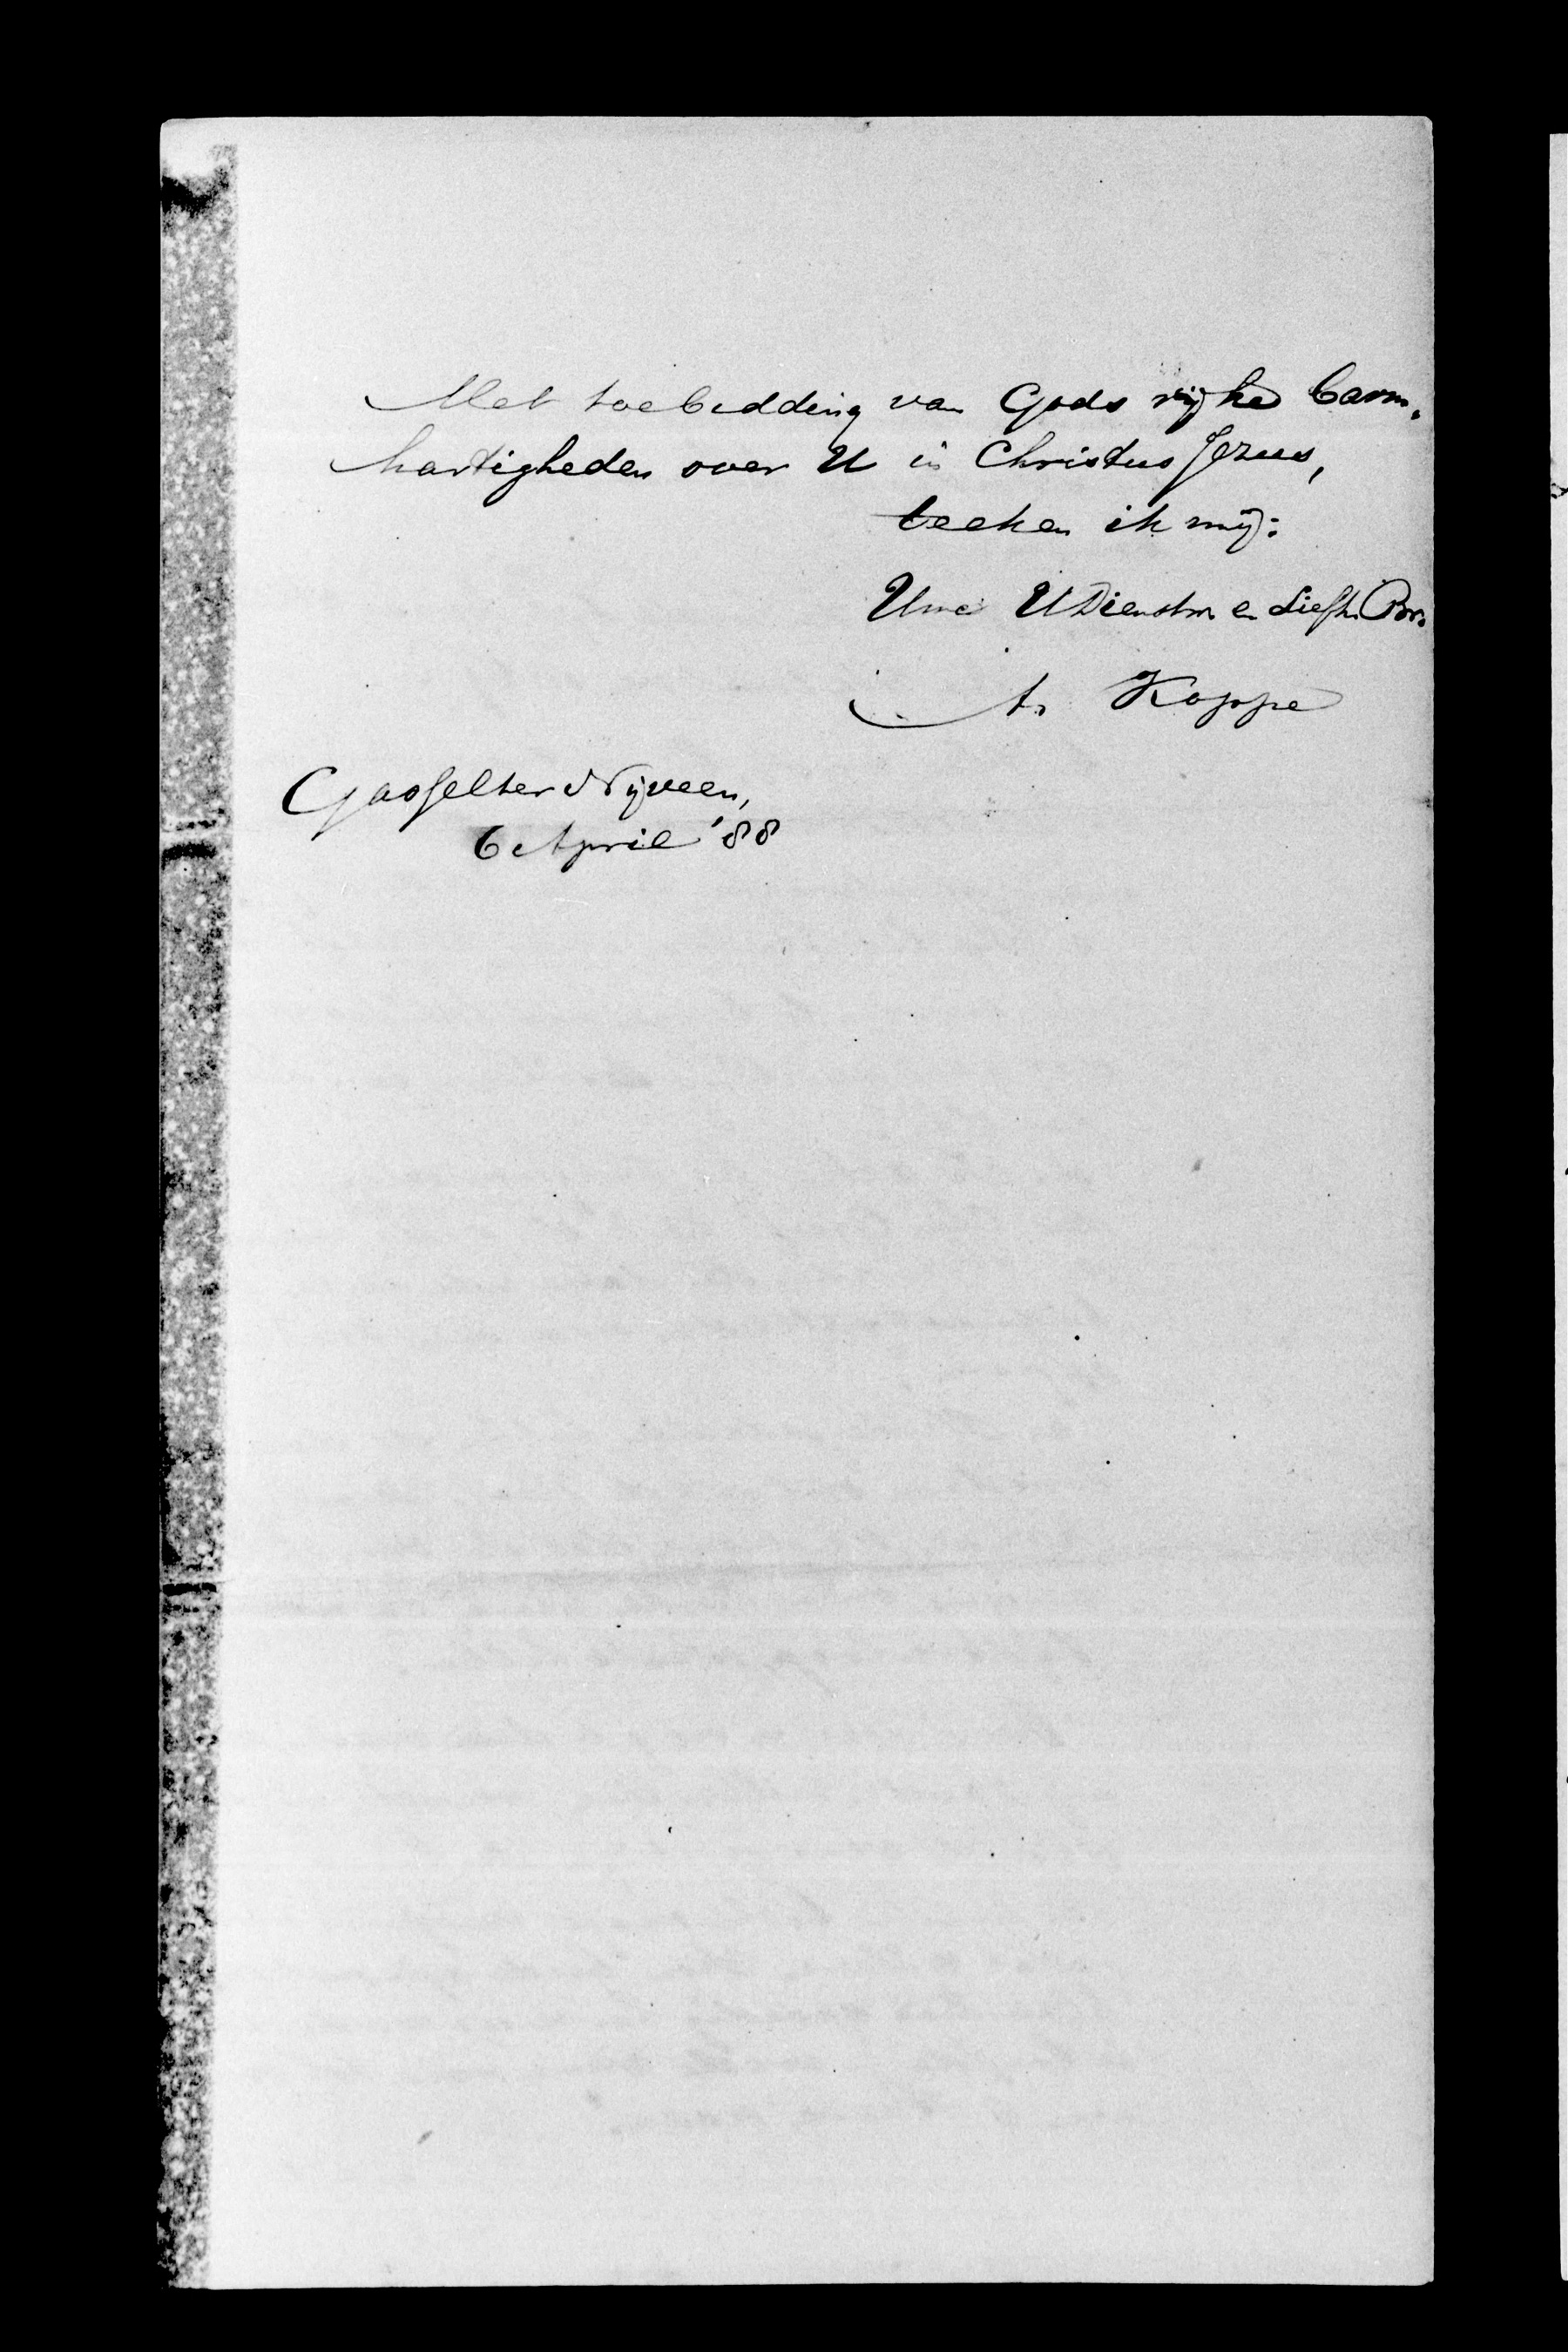 Met toebidding van Gods rijke barm-
hartigheden over U in Christus Jezus,
teeken ik mij:
Uwe UDienstw en Liefh. Br.
A. Koppe
Gasselter Nijveen,
6 April '88